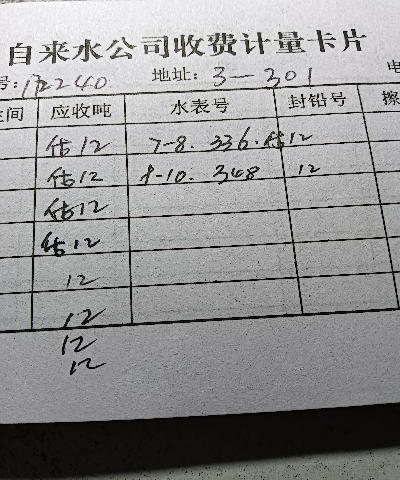 自来水公司收费计量卡片
号: 12240 地址: 3—301 电
间 应收吨 水表号 封铅号 擦
估12 7-8. 336. 估12
估12 8-10. 348 12
估12
估12
12
12
12
12